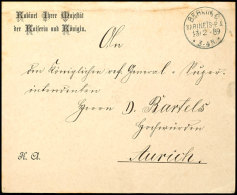 Kabinet Ihrer Majestät
der Kaiserin und Königin.
BERLIN
13 2 89
An
den Königlichen General-Super-
intendenten
Herrn D. Bartels
Hochwürden
K. A.
Aurich.